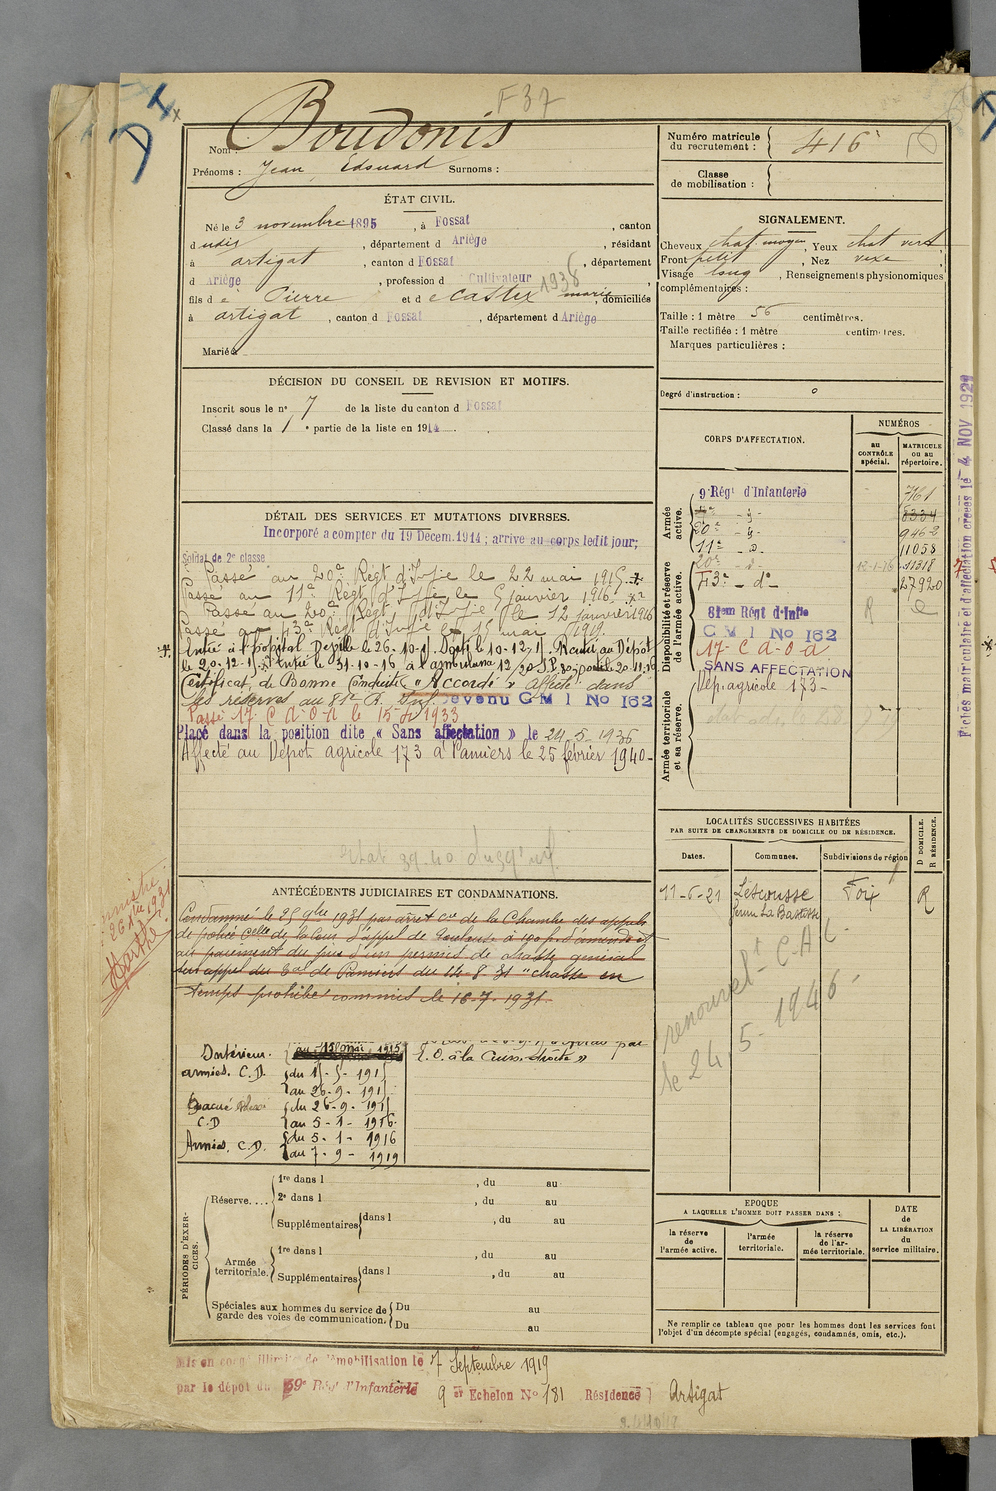 F 37
Nom : Boudonis
Prénoms : Jean, Edouard Surnoms :
Numéro matricule du recrutement : 416
Classe de mobilisation :
ÉTAT CIVIL.
Né le 3 novembre 1895, à Fossat, canton
dudis, département d Ariège, résidant
à artigat, canton d Fossat, département
d Ariège, profession d Cultivateur 1938
fils de Pierre et de Castex marie, domiciliés
à artigat, canton d Fossat, département d Ariège
Marié à
DÉCISION DU CONSEIL DE REVISION ET MOTIFS.
Inscrit sous le n° 7 de la liste du canton d Fossat
Classé dans la 1 e partie de la liste en 1914
DÉTAIL DES SERVICES ET MUTATIONS DIVERSES.
Incorporé a compter du 19 Décem. 1914 ; arrivé au corps ledit jour;
Soldat de 2e classe
Passé au 20e Régt d'Infie le 22 mai 1915
Passé au 11e Régt d'Infie le 5 janvier 1916
Passé au 20e Régt d'Infie le 12 janvier 1916
Passé au 43e Régt d'Infie le 15 mai 1919.
Certificat de Bonne Conduite « Accordé » affecté dans
les réserves au 81e R. Inf. devenu C M I No 162
Passé 17 C A O A le 15 1933
Placé dans la position dite « Sans affectation » le 24-5-1936
Affecté au Dépot agricole 173 à Pamiers le 25 février 1940-
ANTÉCÉDENTS JUDICIAIRES ET CONDAMNATIONS.
Condamné le 25 9bre 1931 par arret Cre de la Chambe des appels
de police Celle de la Cour d'appel de Toulouse à 100 f. d'amende et
au paiement du prix d'un permis de chasse général
sur appel du Bal de Pamiers du 24 8 31 "chasse en
temps prohibé" commis le 16-7-1931.
Intérieur. au 15 mai 1915
É. O. à la Cuisse droite »
armées. C.D. du 15-5-1915
au 26-9-1915
Évacué du 26-9-1915
C.D au 5-1-1916
Armées. C.D. du 5-1-1916
au 7-9-1919
PÉRIODES D'EXERCICES.
Réserve.... 1re dans l , du au
2e dans l , du au
Supplémentaires dans l , du au
Armée territoriale. 1re dans l , du au
Supplémentaires dans l , du au
Spéciales aux hommes du service de garde des voies de communication. Du au
Du au
Mis en congé illimité de démobilisation le 7 Septembre 1919
par le dépot du 59e Régt d'Infanterie 9 er Echelon No 181 Résidence Artigat
SIGNALEMENT.
Cheveux chat. moyen, Yeux chat vert
Front petit, Nez vexe
Visage long, Renseignements physionomiques
complémentaires :
Taille : 1 mètre 56 centimètres.
Taille rectifiée : 1 mètre centimètres.
Marques particulières :
Degré d'instruction : 0
CORPS D'AFFECTATION.
NUMÉROS
au CONTRÔLE spécial.
MATRICULE ou au répertoire.
Armée active.
9e Régt d'Infanterie 7161
8334
20e - d - 9462
11e - d - 11058
20e - d - 12-1-16 11318
43e - de - 27920
Disponibilité et réserve de l'armée active.
81em Régt d'Infie
C M I No 162
17 C a O a
SANS AFFECTATION
Dép. agricole 173-
Armée territoriale et sa réserve.
LOCALITÉS SUCCESSIVES HABITÉES
PAR SUITE DE CHANGEMENTS DE DOMICILE OU DE RÉSIDENCE.
D DOMICILE. R RÉSIDENCE.
Dates. Communes. Subdivisions de région
11-6-21 Lescousse Foix R
ferme La Bastisse
renouvelt C.A.C.
le 24 5-1946-
EPOQUE
A LAQUELLE L'HOMME DOIT PASSER DANS :
la réserve de l'armée active.
l'armée territoriale.
la réserve de l'armée territoriale.
DATE de LA LIBÉRATION du service militaire.
Ne remplir ce tableau que pour les hommes dont les services font
l'objet d'un décompte spécial (engagés, condamnés, omis, etc.).
Fiches matriculaire et d'affectation créées le 4 NOV 1929